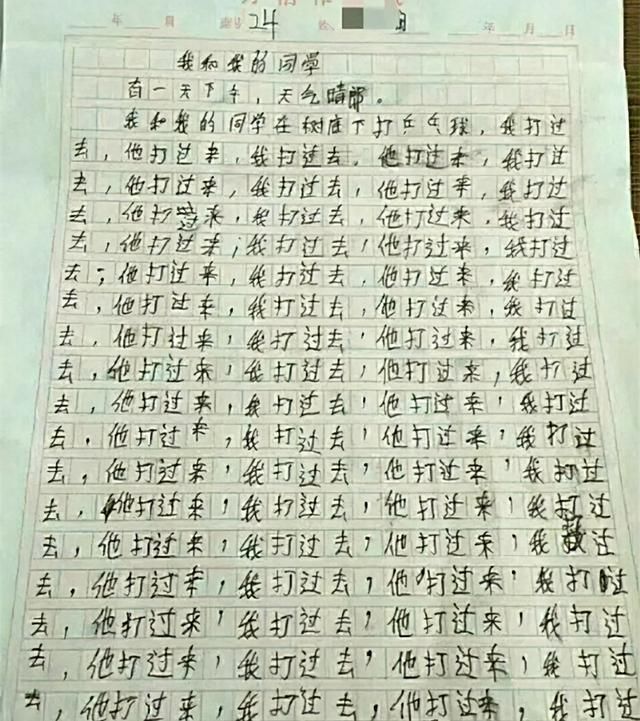 年 月 24 月 年 月 日
我和我的同学
有一天下午，天气晴朗。
我和我的同学在树底下打乒乓球，我打过
去，他打过来，我打过去，他打过来，我打过
去，他打过来，我打过去，他打过来，我打过
去，他打过来，我打过去，他打过来，我打过
去，他打过来，我打过去，他打过来，我打过
去，他打过来，我打过去，他打过来，我打过
去，他打过来，我打过去，他打过来，我打过
去，他打过来，我打过去，他打过来，我打过
去，他打过来，我打过去，他打过来，我打过
去，他打过来，我打过去，他打过来，我打过
去，他打过来，我打过去，他打过来，我打过
去，他打过来，我打过去，他打过来，我打过
去，他打过来，我打过去，他打过来，我打过
去，他打过来，我打过去，他打过来，我过
去，他打过来，我打过去，他打过来，我打过
去，他打过来，我打过去，他打过来，我打过
去，他打过来，我打过去，他打过来，我打过
去，他打过来，我打过去，他打过来，我打过